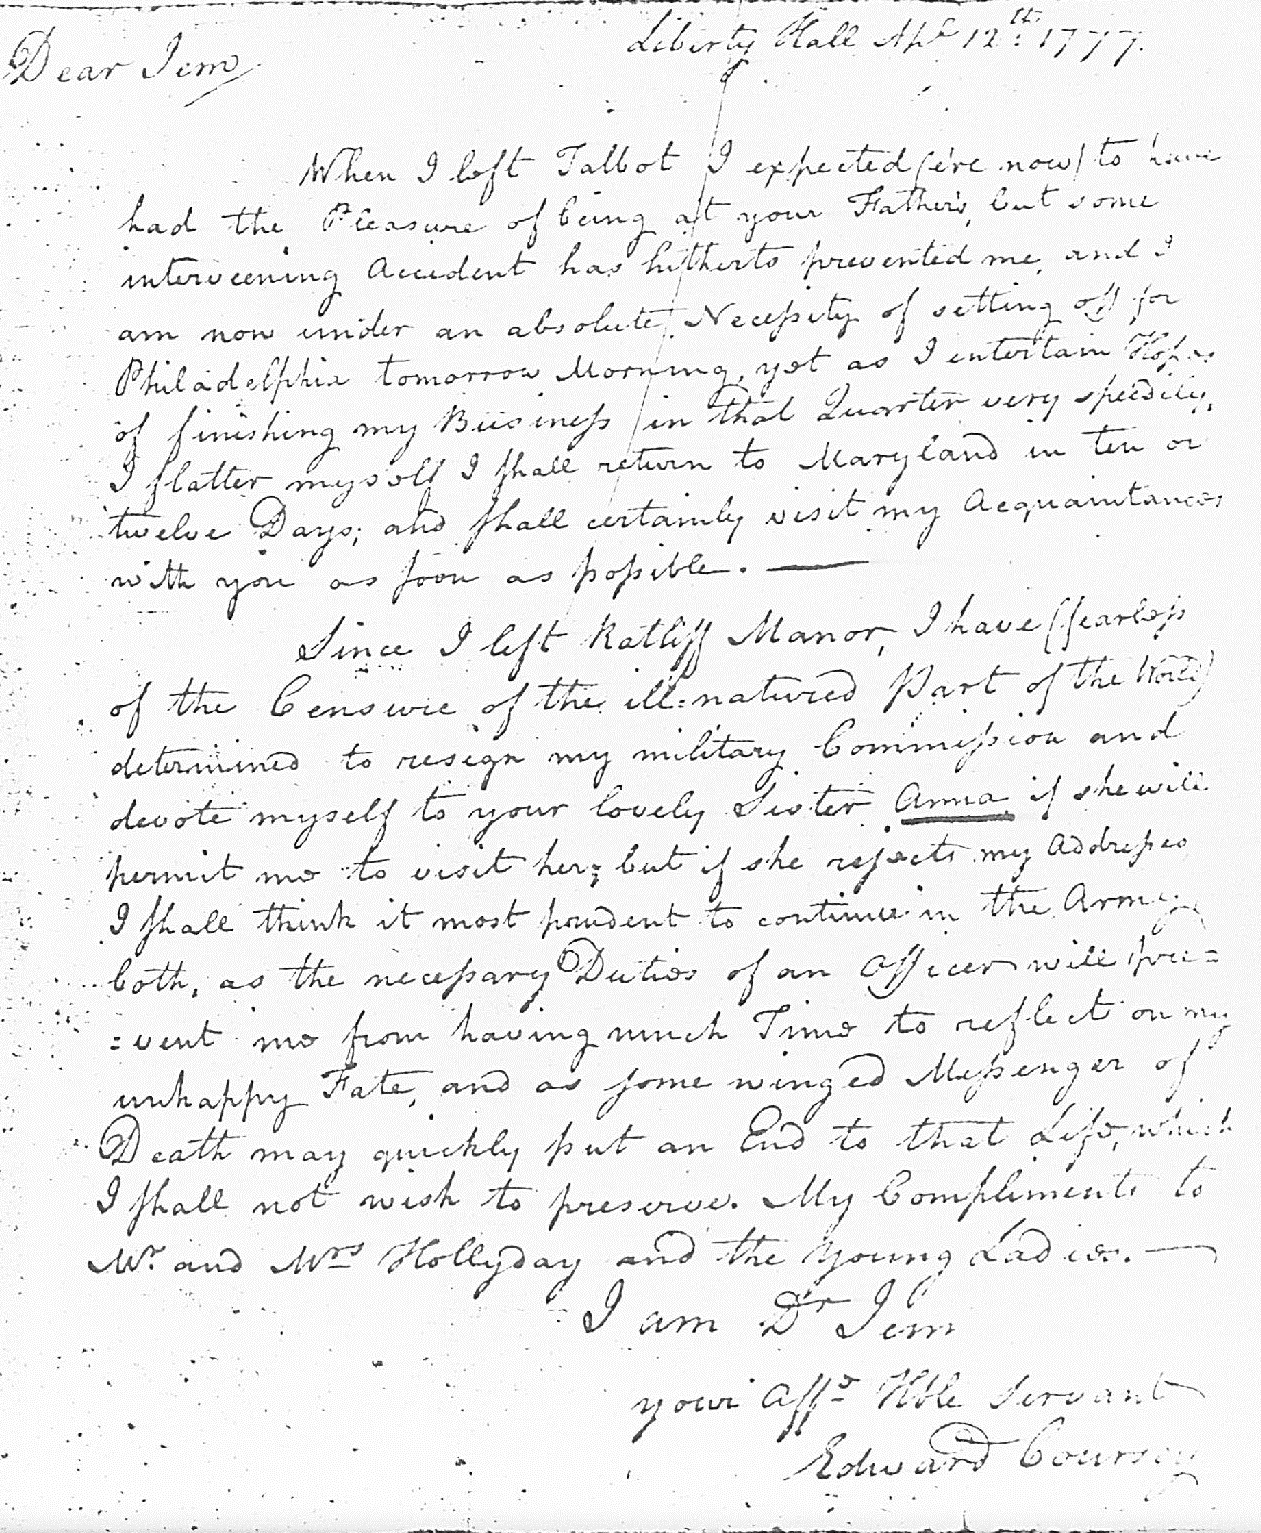 Liberty Hall Apl 12th: 1777.
Dear Jem
When I left Talbot I expected (e're now) to have
had the Pleasure of being at your Father's, but some
interveening Accident has hitherto prevented me, and I
am now under an absolute Necessity of setting off for
Philadelphia tomorrow Morning, yet as I entertain Hopes
of finishing my Business in that Quarter very speedily,
I flatter myself I shall return to Maryland in ten or
twelve Days; and shall certainly visit my Acquaintances
with you as soon as possible. —
Since I left Ratliff Manor, I have (fearless
of the Censure of the ill-natured Part of the World)
determined to resign my military Commission and
devote myself to your lovely Sister Anna if she will
permit me to visit her; but if she rejects my Addresses
I shall think it most prudent to continue in the Army
both, as the necessary Duties of an Officer will pre=
=vent me from having much Time to reflect on my
unhappy Fate, and as some winged Messenger of
Death may quickly put an End to that Life, which
I shall not wish to preserve. My Compliments to
Mr. and Mrs Hollyday and the Young Ladies. —
I am Dr Jem
your Affe Hble Servant
Edward Coursey